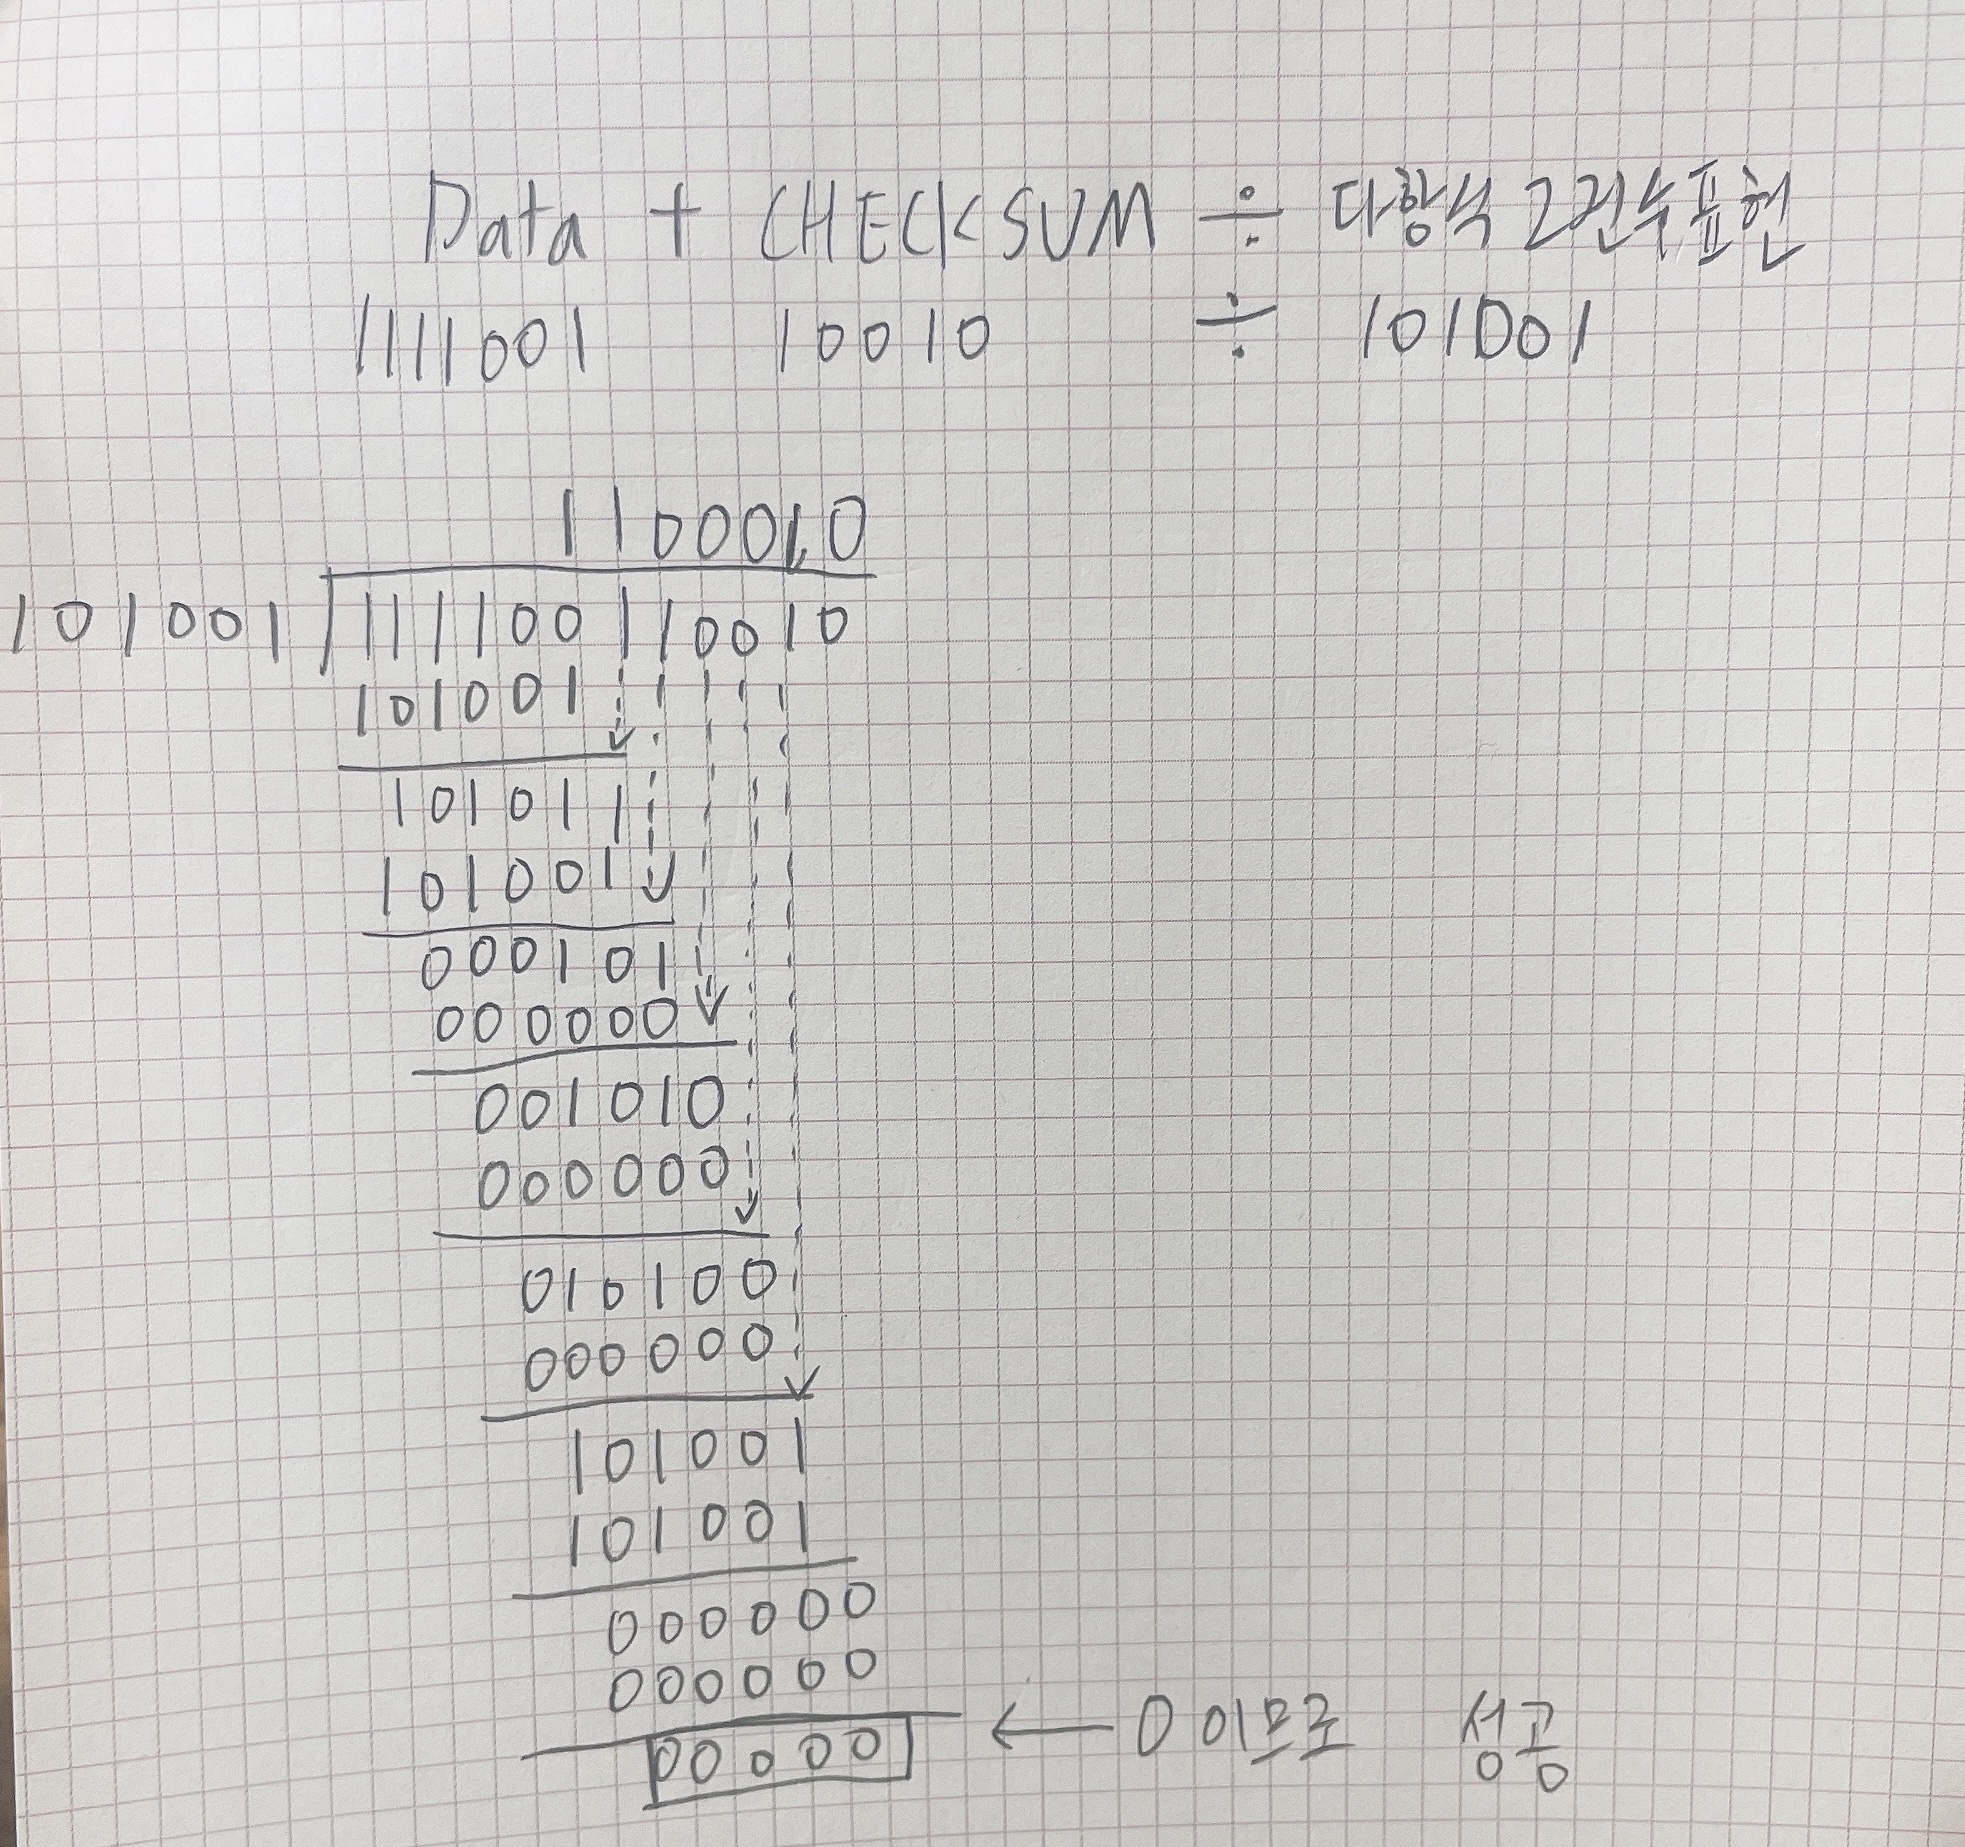 Data + CHECKSUM ÷ 다항식 2진수 표현
1111001 10010 ÷ 101001
1100010
101001 111100110010
101001
101011
101001
000101
000000
001010
000000
010100
000000
101001
101001
000000
000000
00000 ← 0 이므로 성공